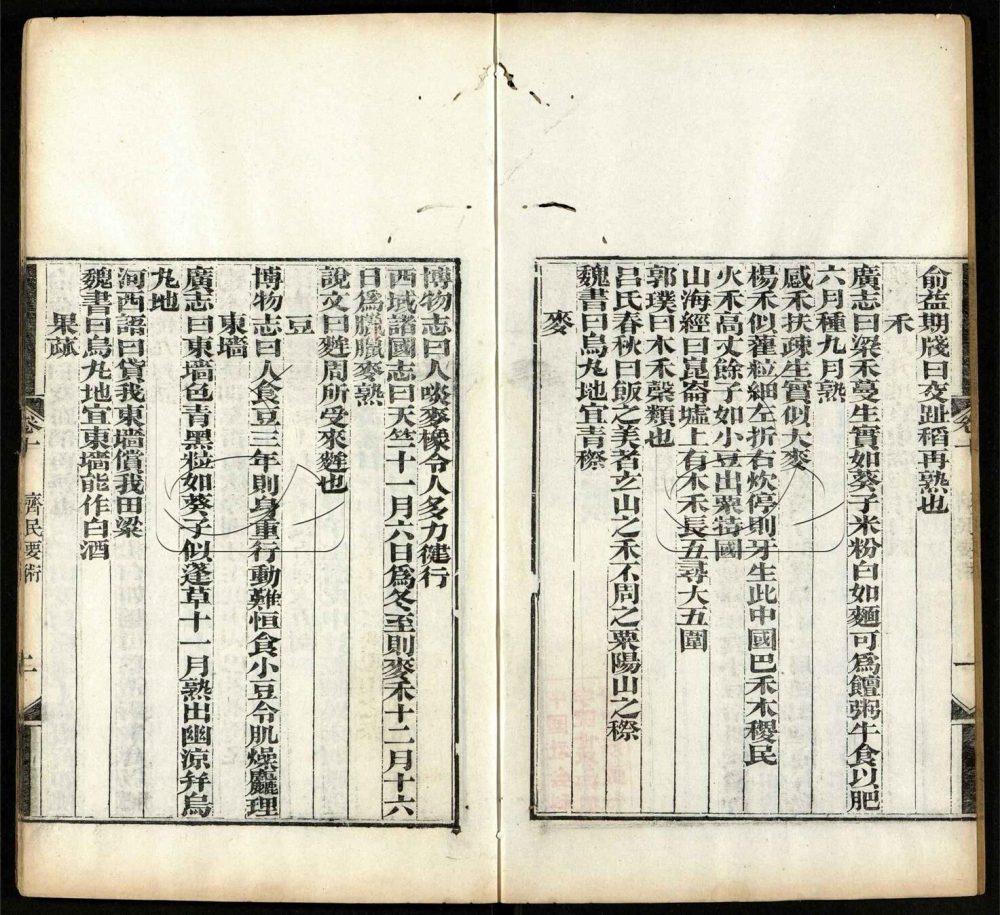 俞益期牋曰交趾稻再熟也
禾
廣志曰梁禾蔓生實如葵子米粉白如麵可爲饘粥牛食以肥
六月種九月熟
感禾扶疎生實似大麥
楊禾似雚粒細左折右炊停則牙生此中國巴禾木稷民
火禾高丈餘子如小豆出粟特國
山海經曰崑崙墟上有木禾長五尋大五圍
郭璞曰木禾穀類也
呂氏春秋曰飯之美者玄山之禾不周之粟陽山之穄
魏書曰烏丸地宜青穄
麥
博物志曰人啖麥橡令人多力健行
西域諸國志曰天竺十一月六日爲冬至則麥禾十二月十六
日爲臘臘麥熟
說文曰麰周所受來麰也
豆
博物志曰人食豆三年則身重行動難恒食小豆令肌燥麤理
東墻
廣志曰東墻色青黑粒如葵子似蓬草十一月熟出幽涼并烏
丸地
河西語曰貸我東墻償我田梁
魏書曰烏丸地宜東墻能作白酒
果蓏
卷十
齊民要術
二